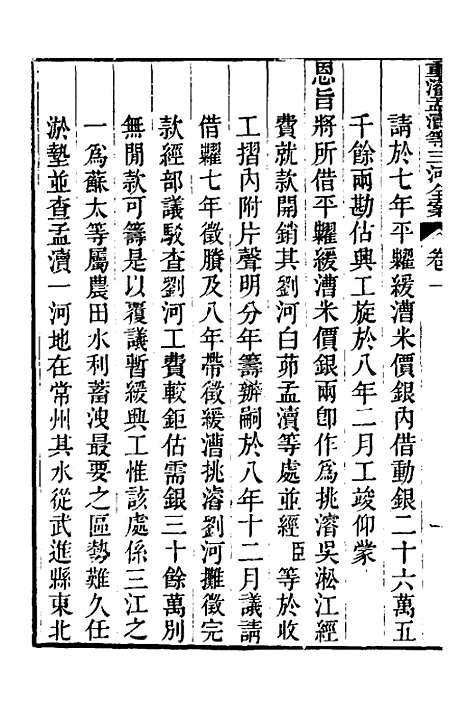 重濬孟瀆等三河全案 卷一 一
請於七年平糶緩漕米價銀內借動銀二十六萬五
千餘兩勘估興工旋於八年二月工竣仰蒙
恩旨將所借平糶緩漕米價銀兩卽作爲挑濬吳淞江經
費就款開銷其劉河白茆孟瀆等處並經臣等於收
工摺內附片聲明分年籌辦嗣於八年十二月議請
借糶七年徵賸及八年帶徵緩漕挑濬劉河攤徵完
款經部議駁查劉河工費較鉅估需銀三十餘萬別
無閒款可籌是以覆議暫緩興工惟該處係三江之
一爲蘇太等屬農田水利蓄洩最要之區勢難久任
淤墊並查孟瀆一河地在常州其水從武進縣東北